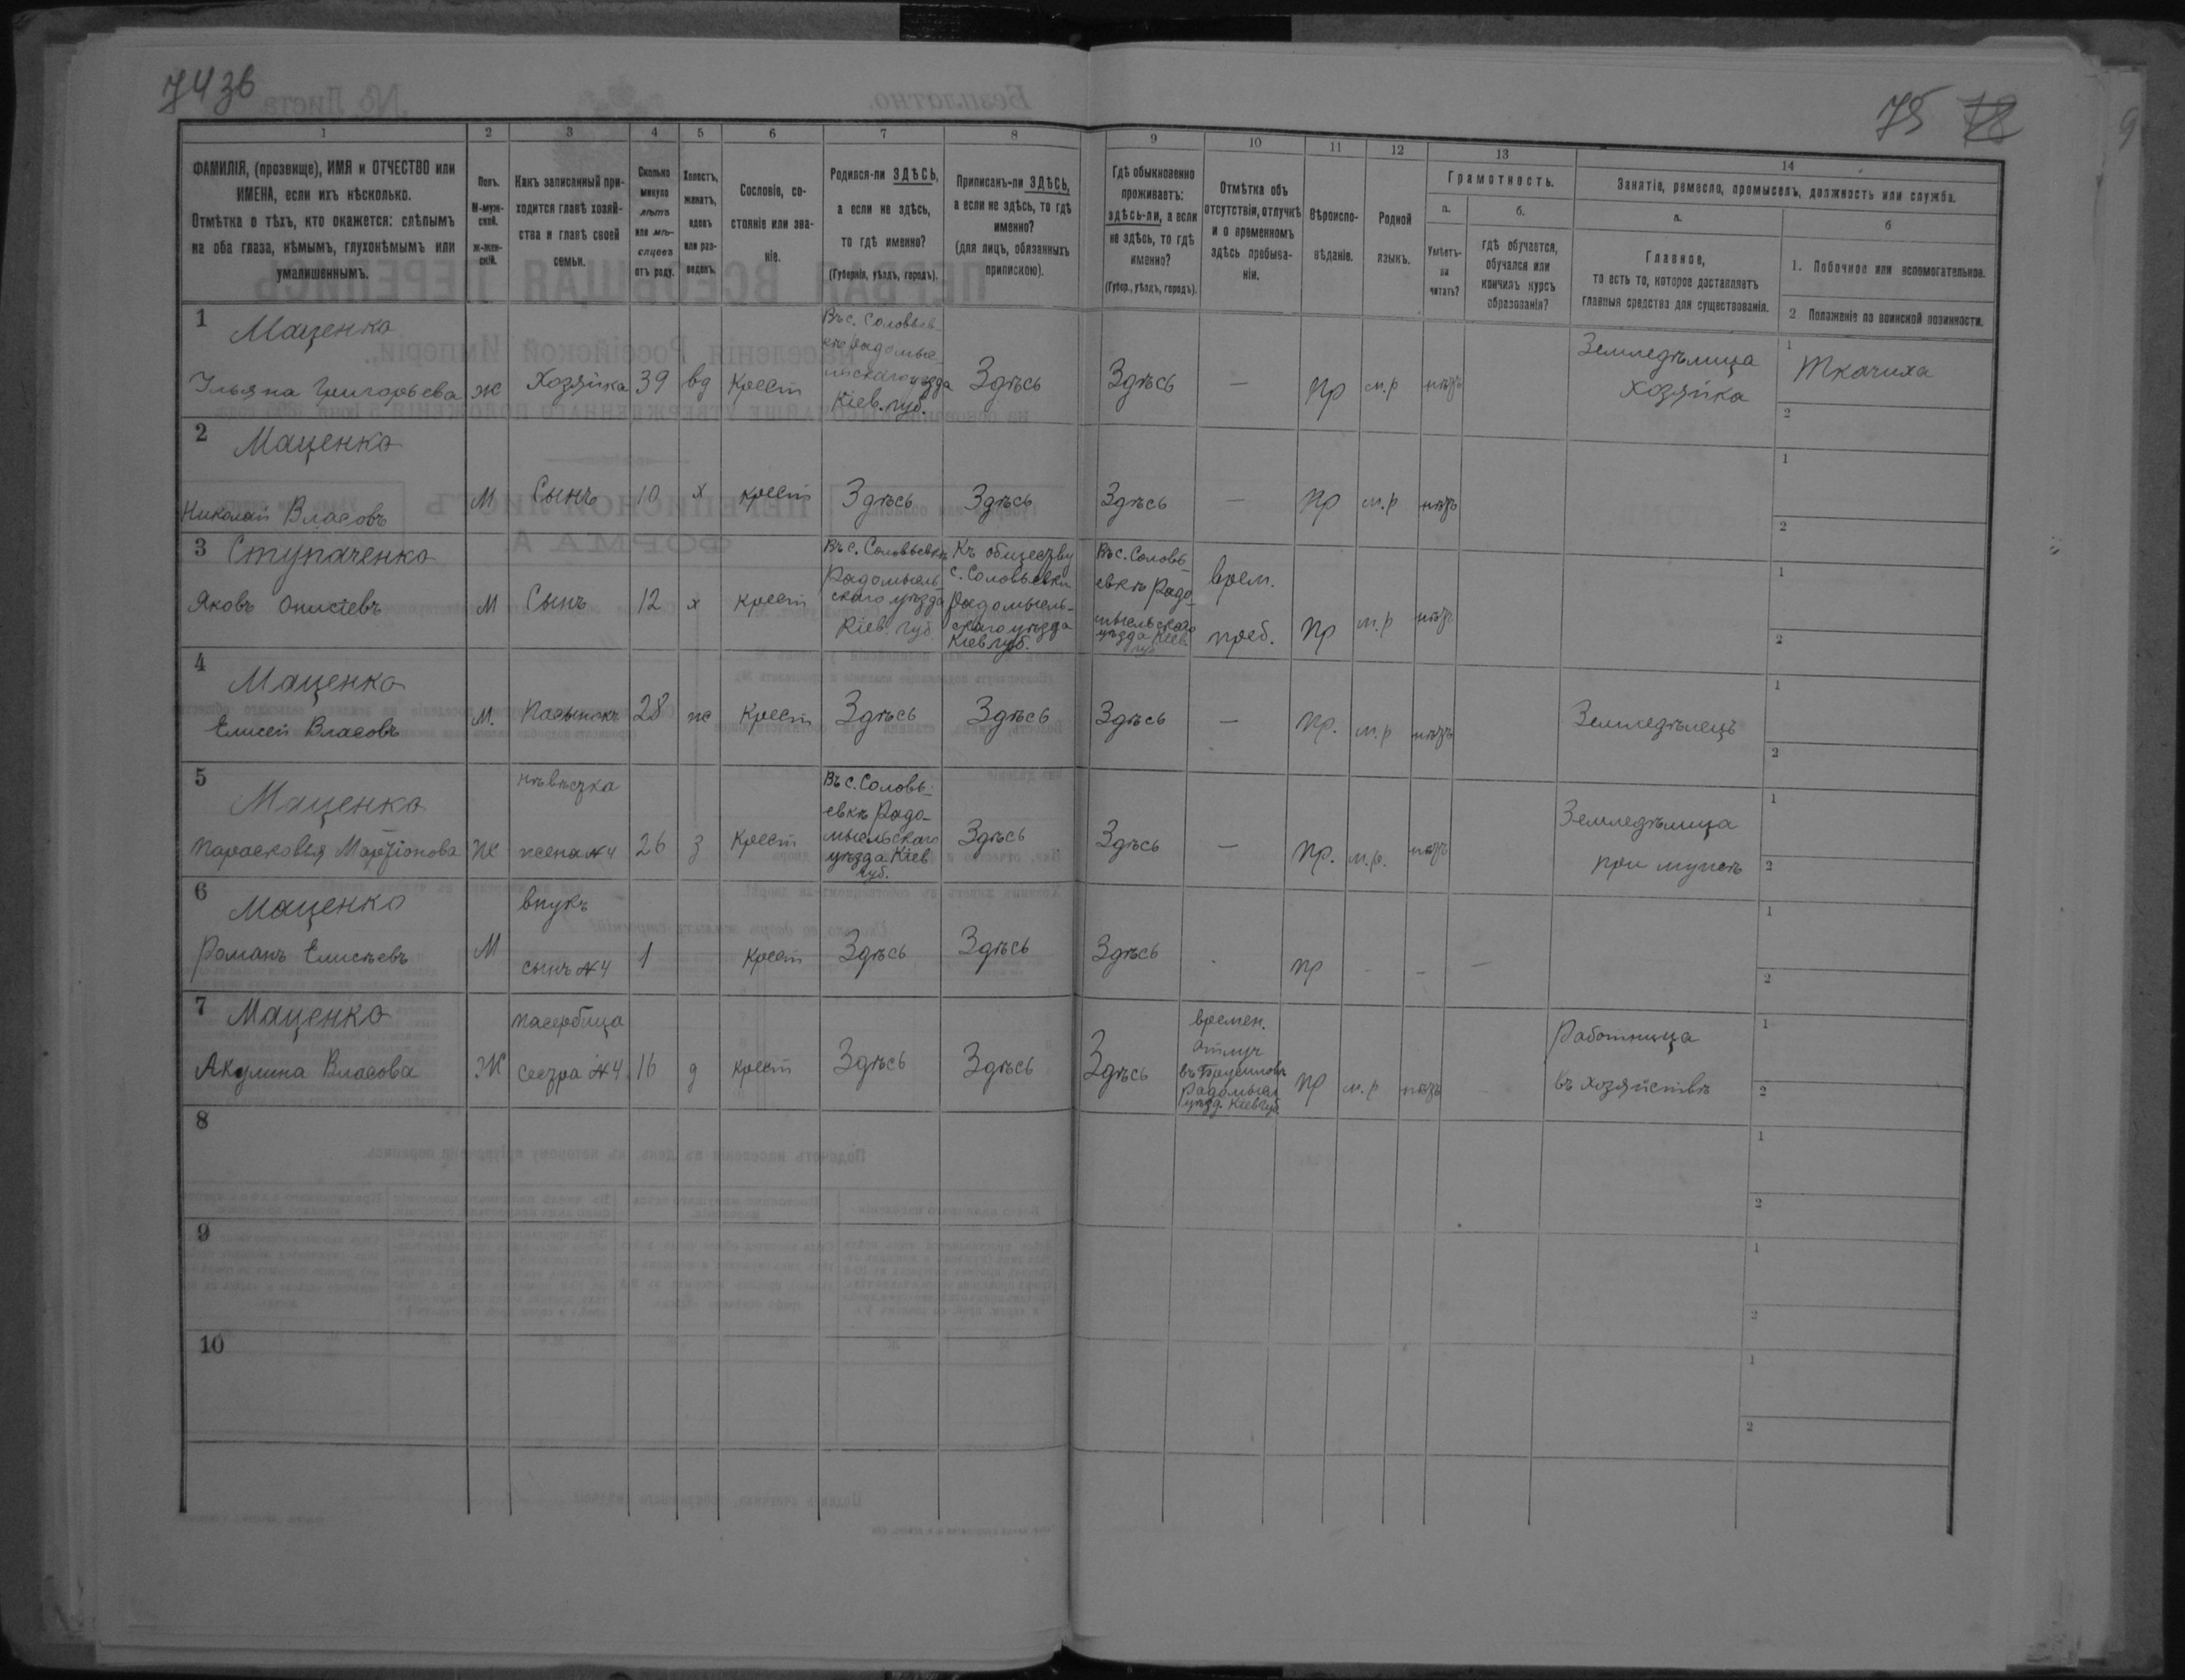 74 зв
75
1 2 3 4 5 6 7 8 9 10 11 12 13 14
ФАМИЛІЯ, (прозвище), ИМЯ и ОТЧЕСТВО или
ИМЕНА, если ихъ нѣсколько.
Отмѣтка о тѣхъ, кто окажется: слѣпымъ
на оба глаза, нѣмымъ, глухонѣмымъ или
умалишеннымъ.
Полъ.
М-муж-
ской.
ж-жен-
скій.
Какъ записанный при-
ходится главѣ хозяй-
ства и главѣ своей
семьи.
Сколько
минуло
лѣтъ
или мѣ-
сяцевъ
отъ роду.
Холостъ,
женатъ,
вдовъ
или раз-
веденъ.
Сословіе, со-
стояніе или зва-
ніе.
Родился-ли ЗДѢСЬ,
а если не здѣсь,
то гдѣ именно?
(Губернія, уѣздъ, городъ).
Приписанъ-ли ЗДѢСЬ,
а если не здѣсь, то гдѣ
именно?
(для лицъ, обязанныхъ
припискою).
Гдѣ обыкновенно
проживаетъ:
здѣсь-ли, а если
не здѣсь, то гдѣ
именно?
(Губер., уѣздъ, городъ).
Отмѣтка объ
отсутствіи, отлучкѣ
и о временномъ
здѣсь пребыва-
ніи.
Вѣроиспо-
вѣданіе.
Родной
языкъ.
Грамотность.
а.
Умѣетъ-
ли
читать?
б.
гдѣ обучается,
обучался или
кончилъ курсъ
образованія?
Занятіе, ремесло, промыселъ, должность или служба.
а.
Главное,
то есть то, которое доставляетъ
главныя средства для существованія.
б
1. Побочное или вспомогательное.
2 Положеніе по воинской повинности.
1 Маценко
Ульяна Григорьева ж Хозяйка 39 вд Крест
Въ с. Соловьев-
кѣ Радомыс-
льскаго уѣзда
Кіев. губ.
Здѣсь Здѣсь — пр м.р нѣтъ
Земледѣлица
хозяйка
1 Ткачиха
2
2 Маценко
Николай Власовъ М Сынъ 10 х крест Здѣсь Здѣсь Здѣсь — пр м.р нѣтъ
1
2
3 Ступаченко
Яковъ Онисіевъ М Сынъ 12 х крест
Въ с. Соловьевкѣ
Радомысль-
скаго уѣзда
Кіев. губ
Къ обществу
с. Соловьевки
Радомысль-
скаго уѣзда
Кіев губ.
Въ с. Соловь-
евкѣ Радо-
мысльскаго
уѣзда Кіев
губ.
врем.
преб.
пр м.р нѣтъ
1
2
4 Маценко
Елисей Власовъ М. Пасынокъ 28 ж Крест Здѣсь Здѣсь Здѣсь — пр. м.р нѣтъ Земледѣлецъ
1
2
5 Маценко
Парасковья Мартіонова Ж
нѣвѣстка
жена №4 26 з Крест
Въ с. Соловь-
евкѣ Радо-
мысльскаго
уѣзда Кіев
губ.
Здѣсь Здѣсь — пр. м.р. нѣтъ
Земледѣлица
при мужѣ
1
2
6 Маценко
Романъ Елисѣевъ М
внукъ
сынъ №4 1 крест Здѣсь Здѣсь Здѣсь пр - - —
1
2
7 Маценко
Акулина Власова Ж
пасербица
сестра №4 16 д крест Здѣсь Здѣсь Здѣсь
времен.
отлуч
въ Брусиловѣ
Радомысл
уѣзд. Кіев губ
пр м.р нѣтъ
Работница
въ хозяйствѣ
1
2
8
1
2
9
1
2
10
1
2